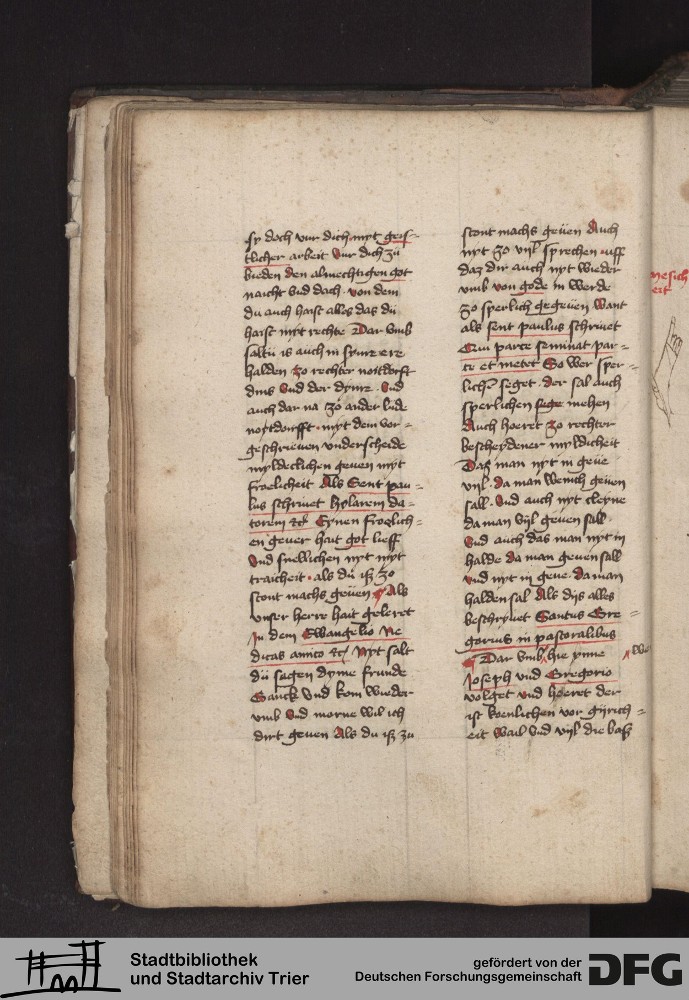 sy doch vur dich nyt geis-
tlicher arbeit Vur dich zu
bieden den almechtigen got
naicht vnd dach. von dem
du auch haist alles das du
haist nyt rechte Dar vmb
saltu is auch in synre ere
halden zo rechter noitdorfft
dins Vnd der dynre. Vnd
auch dar na zo ander lude
noittdorfft. myt dem vor-
geschrieuen vnderscheide
myldeclichen geuen myt
froelicheit Als Sent pau-
lus schriuet hylarem da-
torem etc Eynen froelich-
en geuer hait got lieff
Vnd snellichen nyt myt
traicheit. als du iß zo
stont machs geuen Als
vnser herre hait geleret
Jn dem Ewangelio Ne
dicas amico etc Nyt salt
du sagen dyme frunde
Ganck Vnd kom wieder
vmb Vnd morne wil ich
dirt geuen Als du iß zu
stont machs geuen Auch
nyt zo vyl sprechen. vff
daz dir auch nyt wieder
vmb von gode in werde
zo sperlich gegeuen Want
als sent paulus schriuet
Qui parce seminat par-
ce et metet So wer sper-
lich seget. der sal auch
sperlichen mehen
Auch hoeret zo rechter
bescheydener myldicheit
Das man nyt in geue
vyl. da man wenich geuen
sall. Vnd auch nyt cleyne
da man vyl geuen sall.
Vnd auch das man nyt in
halde da man geuen sall
vnd nyt in geue. da man
halden sal Als dijs alles
beschryuet Santus Gre-
gorius in pastoralibus
Dar vmb hie ynne
Joseph vnd Gregorio
volget vnd hoeret der
ist koenlichen vor gyrich-
eit Wail Vnd vyl die baß
Stadtbibliothek
und Stadtarchiv Trier
gefördert von der
Deutschen Forschungsgemeinschaft
DFG